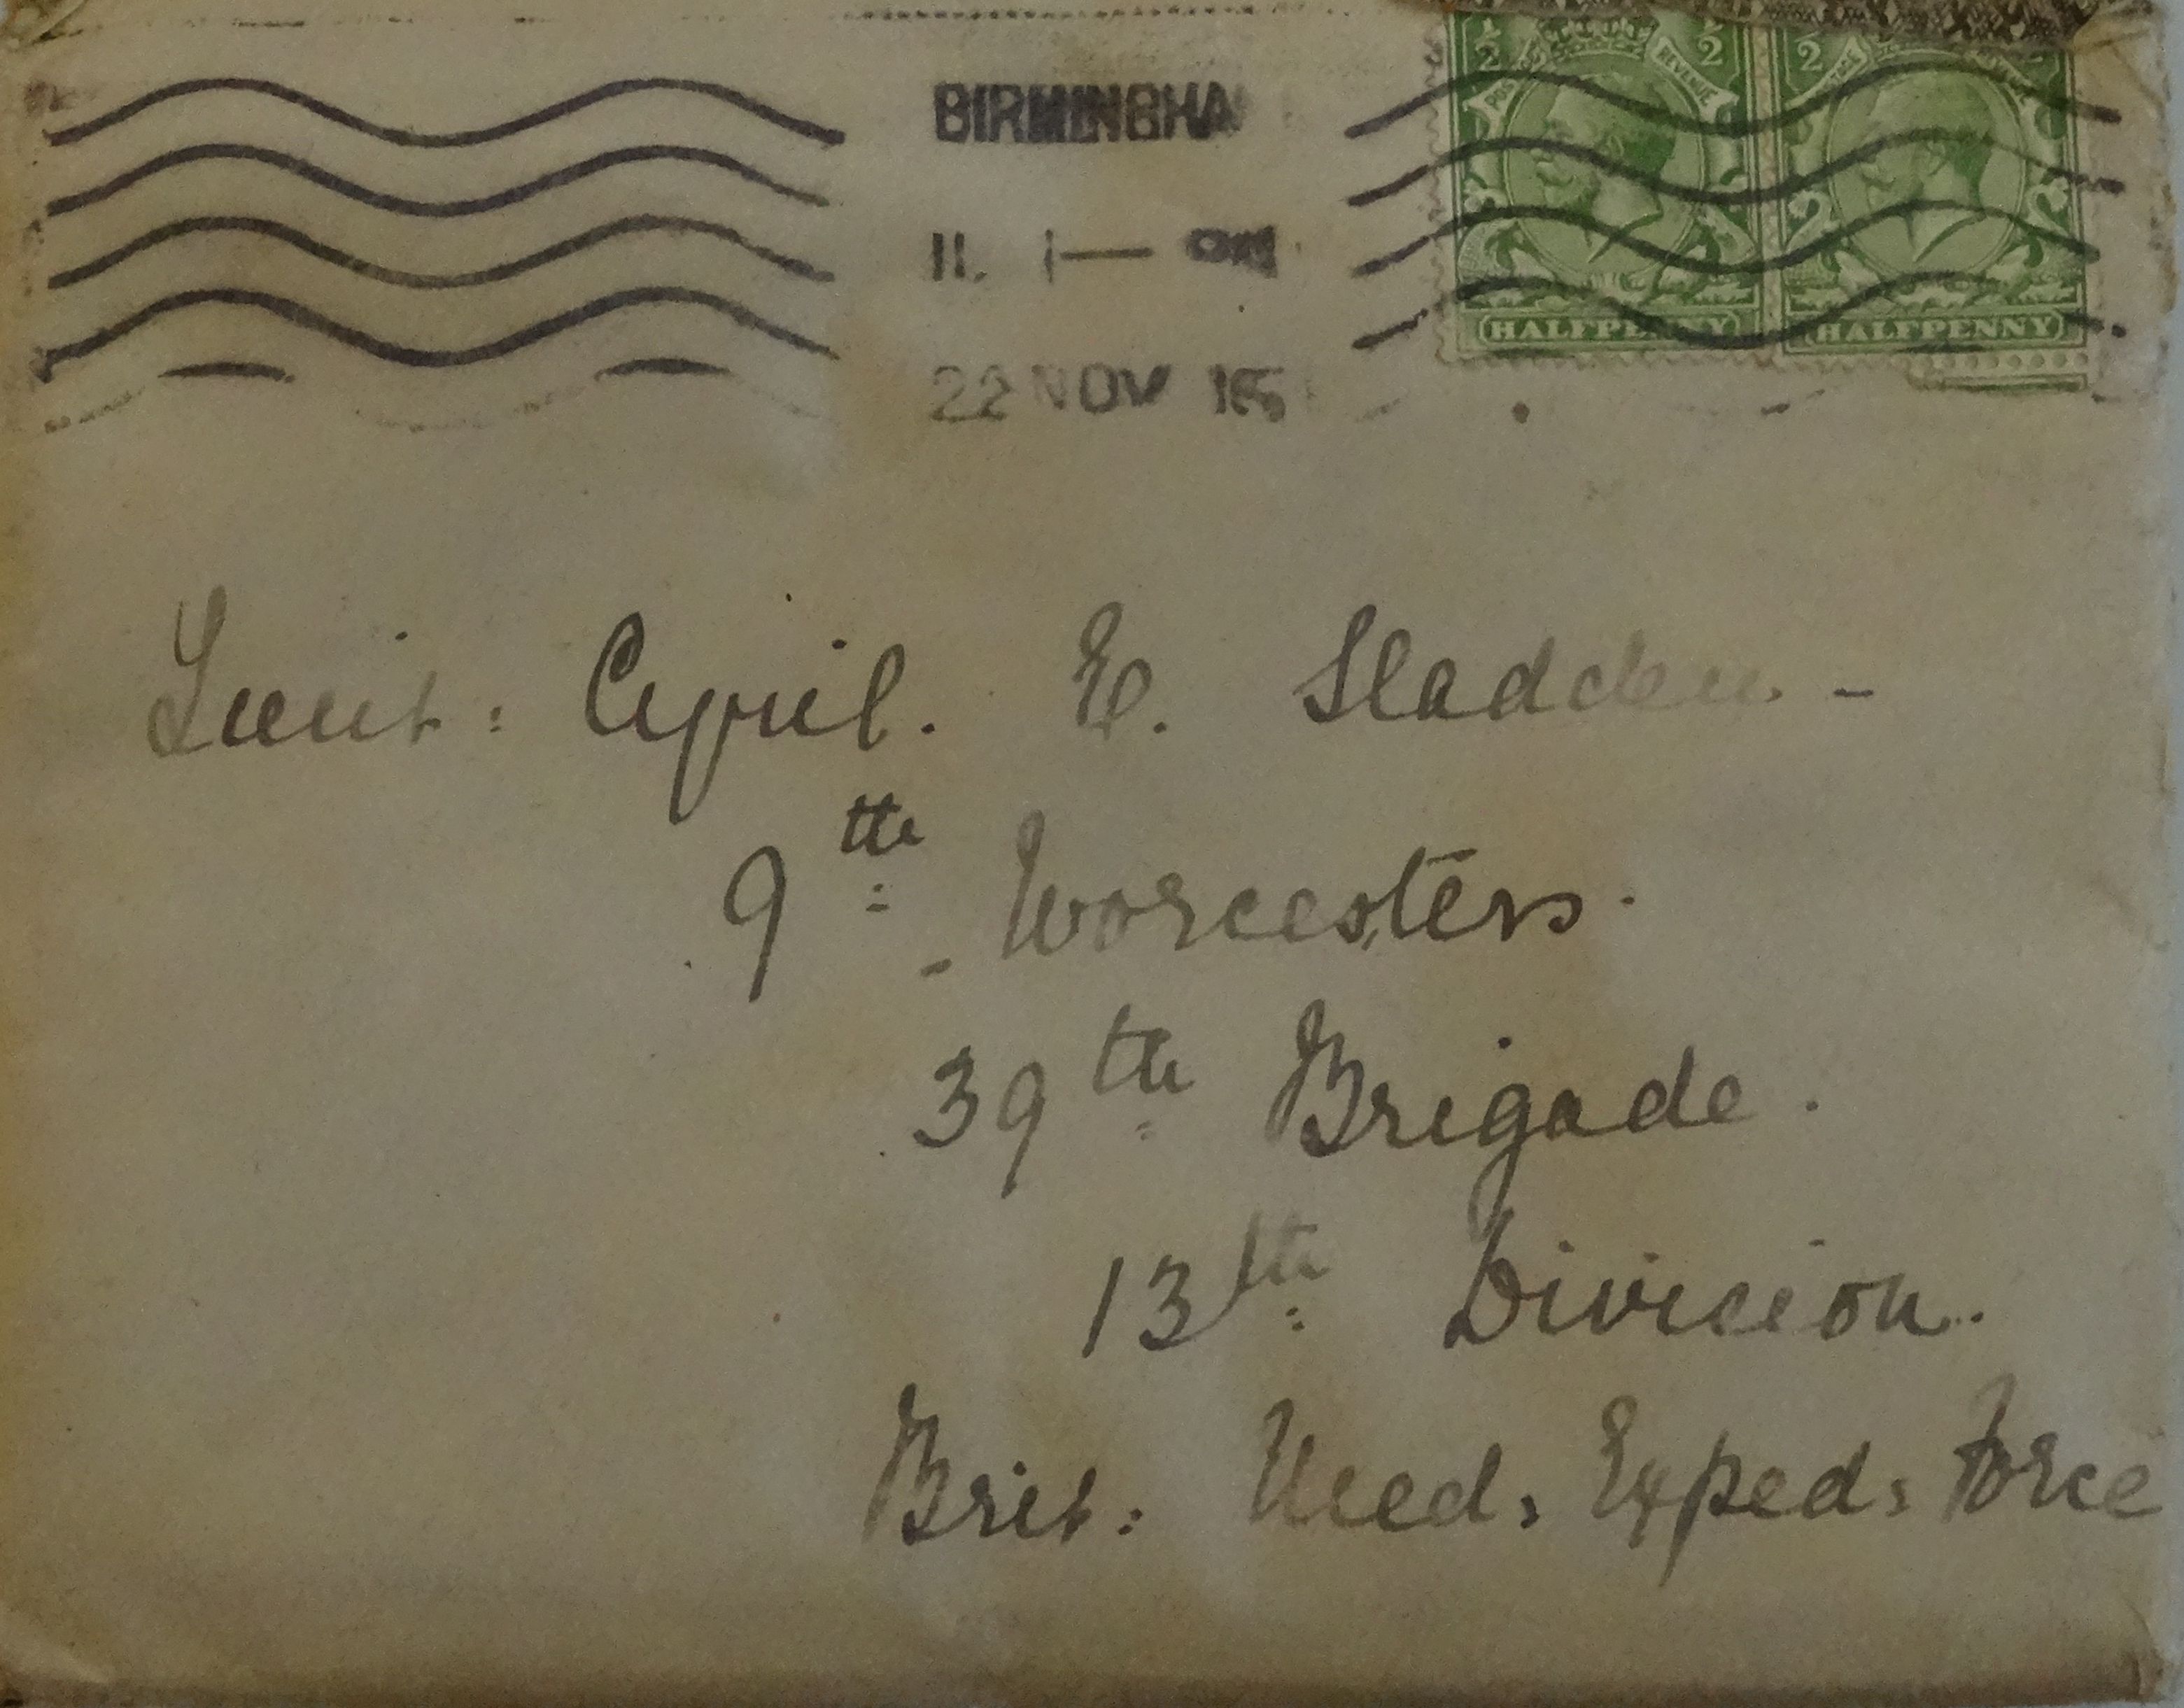 BIRMINGHA
11. 1—
22 NOV 15
½ ½ ½
POSTAGE REVENUE
HALFPENNY HALFPENNY
Lieut: Cyril. E. Sladden -
9th Worcesters.
39th Brigade.
13th Division.
Brit: Med: Exped: Force